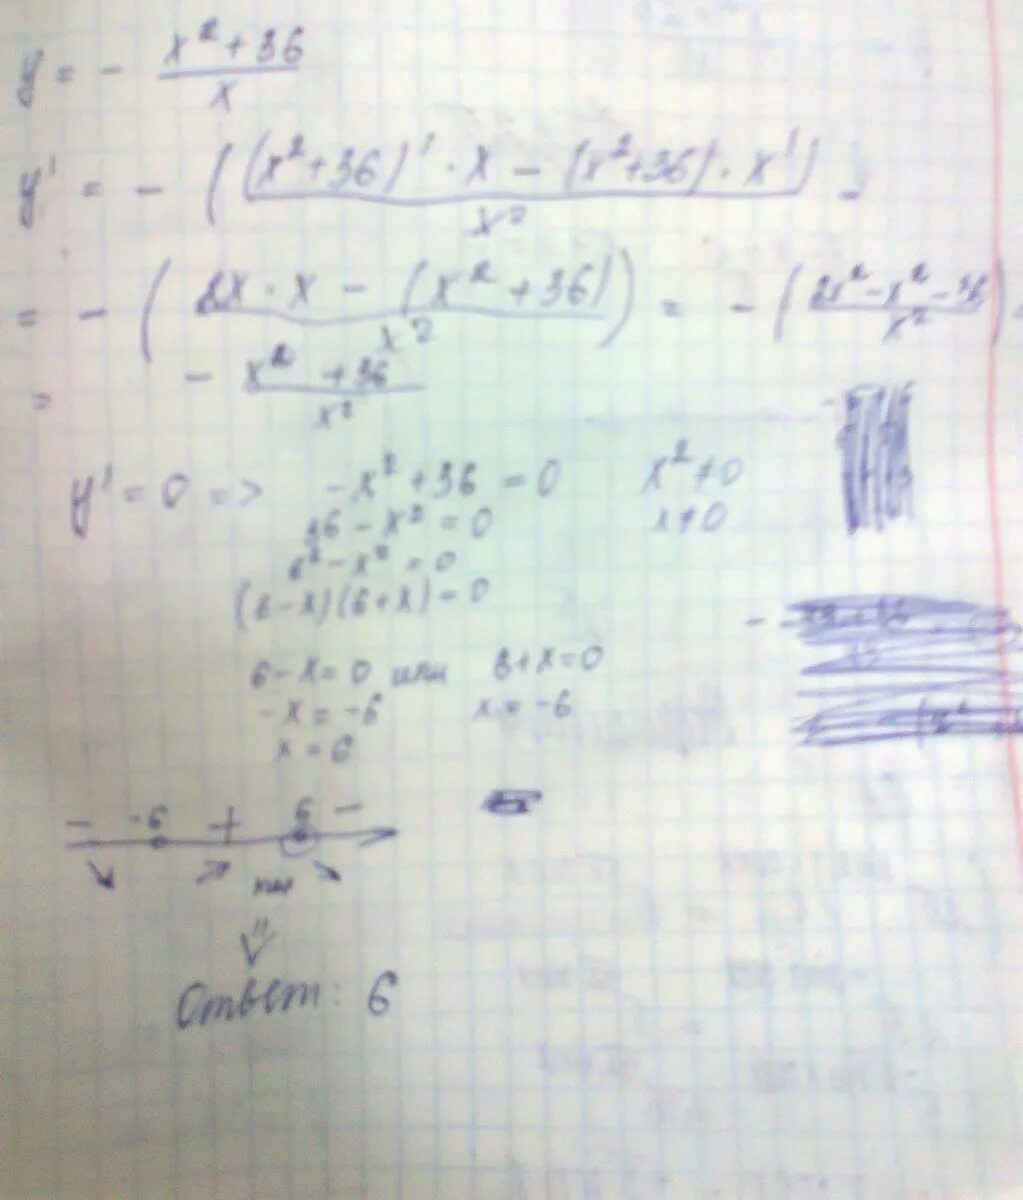 y = - (x² + 36)/x
y' = - ( ((x² + 36)' · x - (x² + 36) · x')/x² ) -
= - ( (2x · x - (x² + 36))/x² ) = - ( (2x² - x² - 36)/x² ) =
= (- x² + 36)/x²
y' = 0 => -x² + 36 = 0 x² ≠ 0
36 - x² = 0 x ≠ 0
6² - x² = 0
(6 - x)(6 + x) = 0
6 - x = 0 или 6 + x = 0
-x = -6 x = -6
x = 6
- -6 + 6 -
Ответ: 6